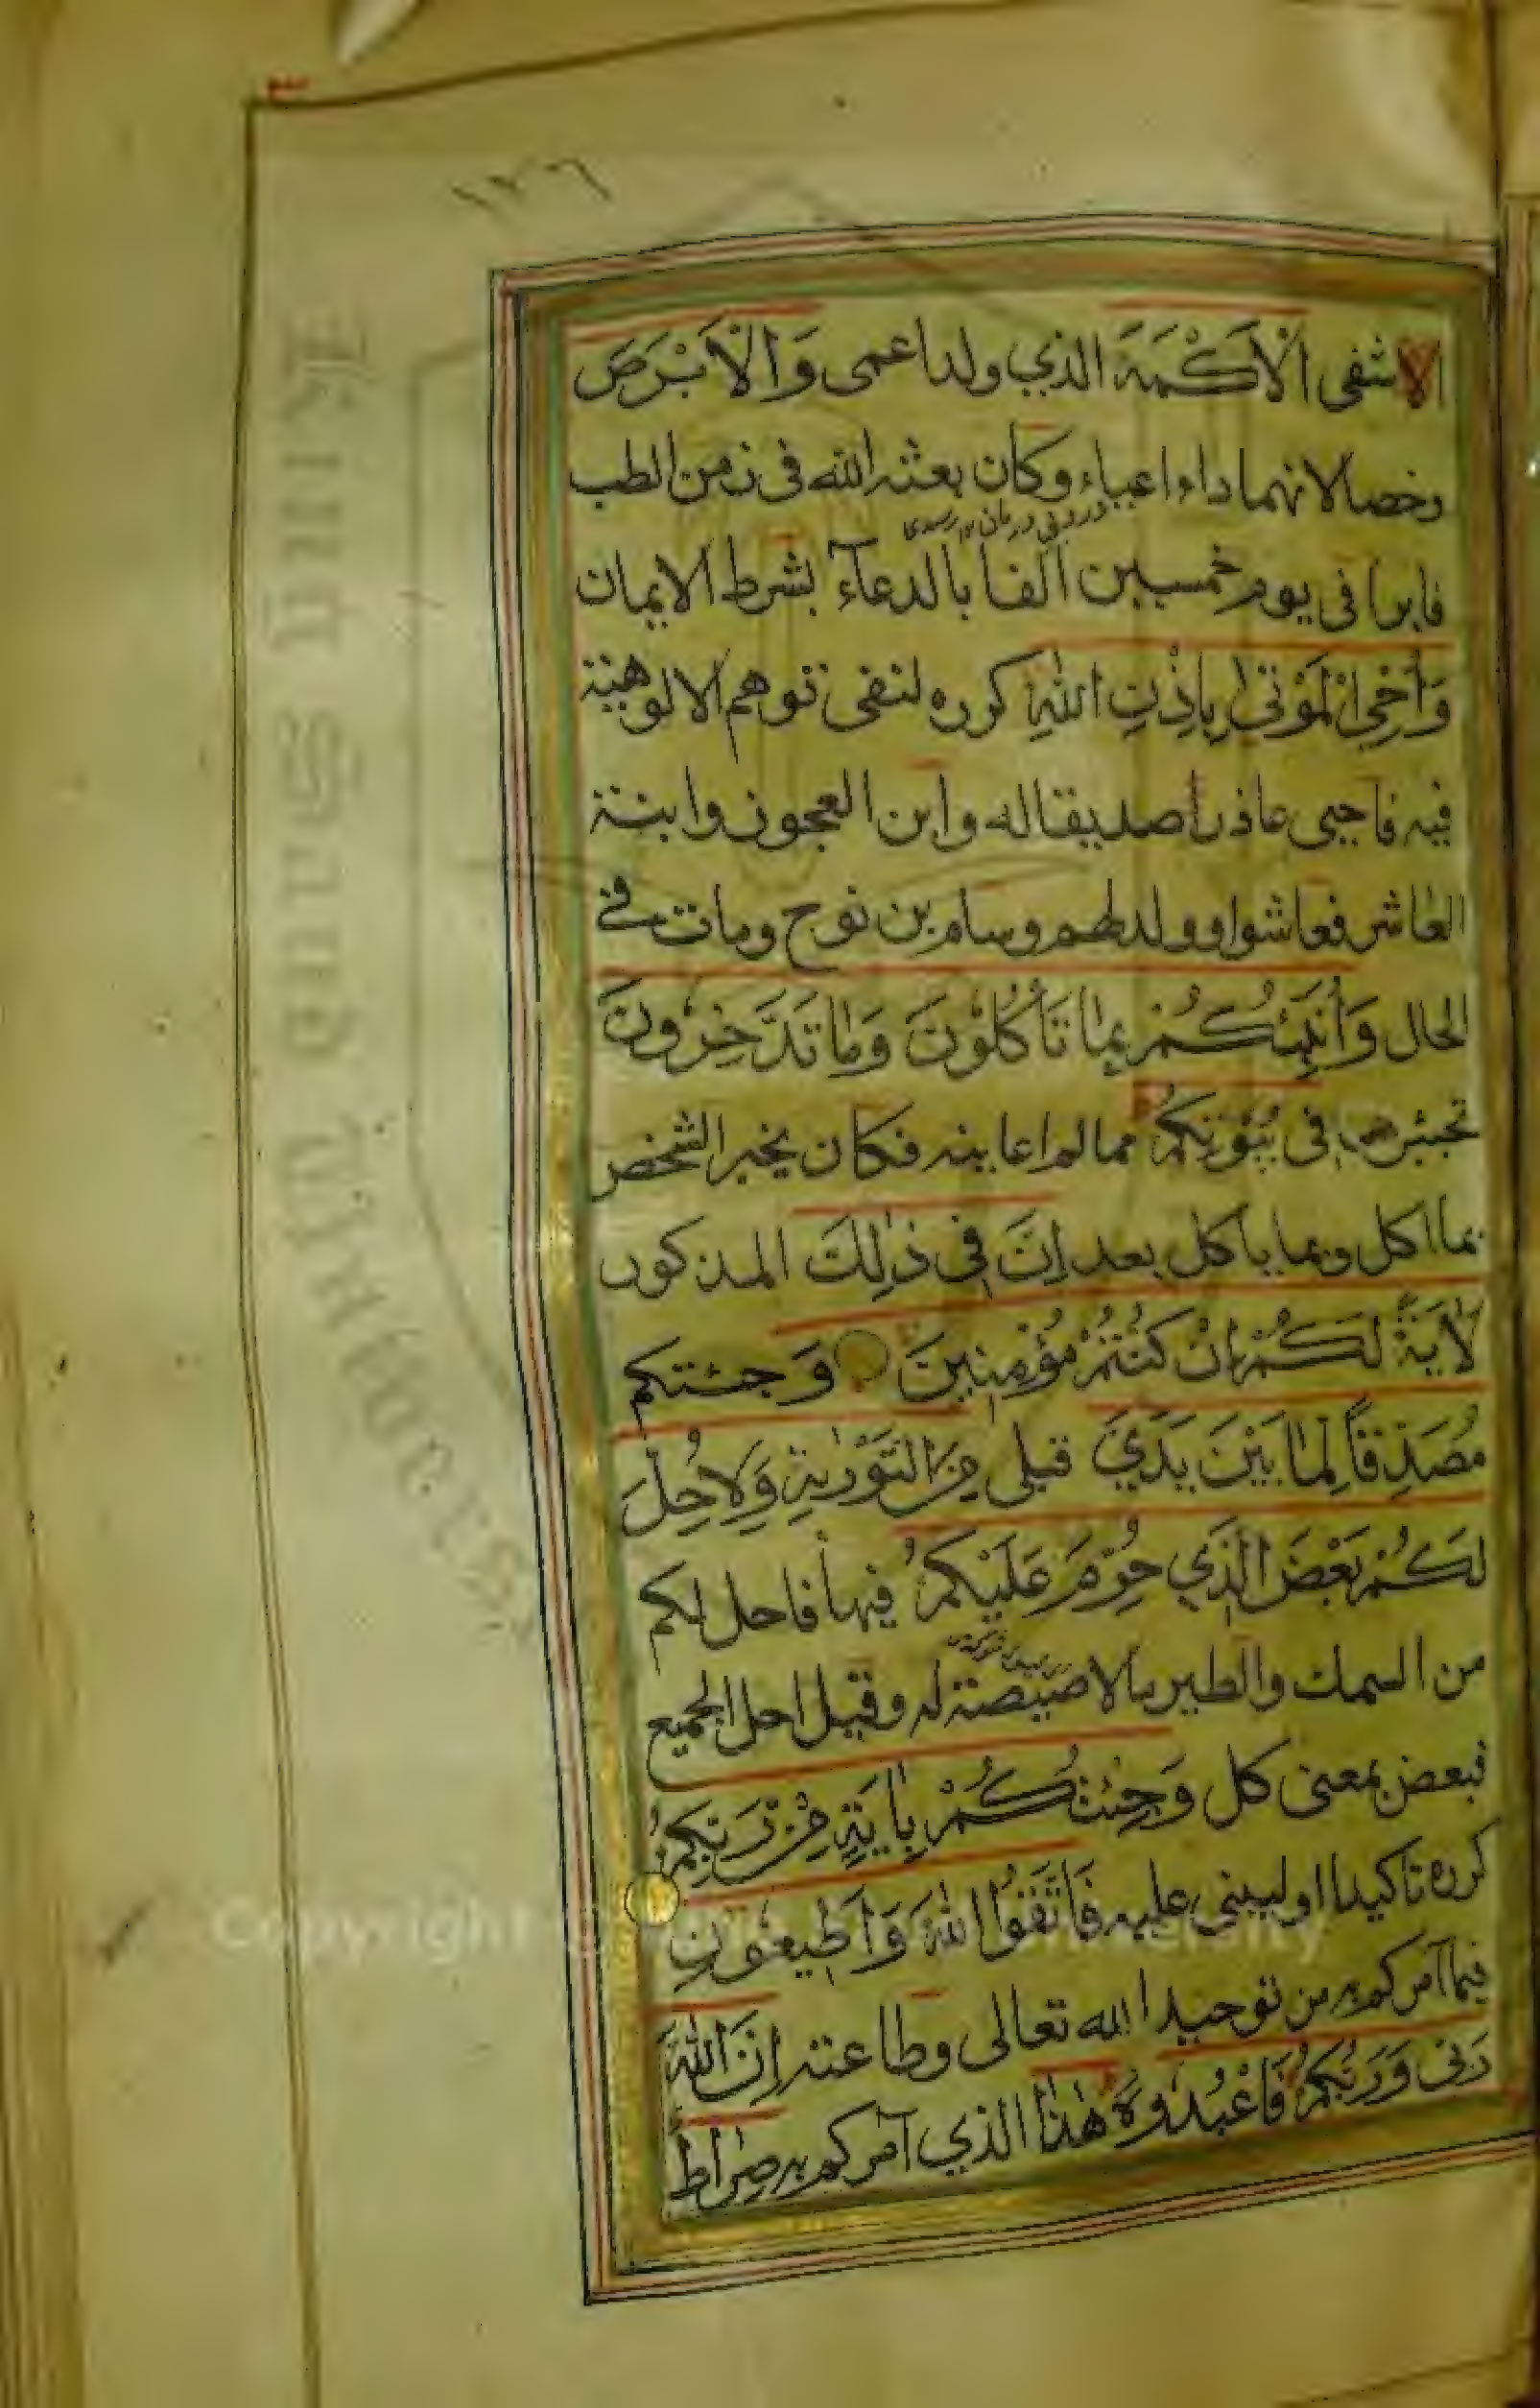 ١٢٦
اشفى الْأَكْمَهَ الذي ولد اعمى وَالْأَبْرَصَ
وخصا لانهما داءا اعياء وكان بعثه الله فى زمن الطب
فابرا فى يوم خمسين الفا بالدعآء بشرط الايمان
وَأُحْيِ الْمَوْتىٰ بِإِذْنِ اللهِ كرره لنفى توهم الالوهية
فيه فاحيى عاذرا صديقا له وابن العجوز وابنة
العاشر فعاشوا وولد لهم وسام بن نوح ومات في
الحال وَأُنَبِّئُكُمْ بِمَا تَأْكُلُونَ وَمَا تَدَّخِرُونَ
تخبئون فى بُيُوتِكُمْ مما لم اعاينه فكان يخبر الشخص
بما اكل وبما ياكل بعد إِنَّ فِي ذٰلِكَ المذكور
لَاٰيَةً لَكُمْ إِنْ كُنْتُمْ مُؤْمِنِينَ وَ جئتكم
مُصَدِّقًا لِمَا بَيْنَ يَدَيَّ قبلى مِنَ التَّوْرٰيةِ وَلِاُحِلَّ
لَكُمْ بَعْضَ الَّذِي حُرِّمَ عَلَيْكُمْ فيها فاحل لكم
من السمك والطير ما لا صيصة له وقيل احل الجميع
فبعض بمعنى كل وَجِئْتُكُمْ بِاٰيَةٍ مِنْ رَبِّكُمْ
كرره تاكيدا او ليبنى عليه فَاتَّقُوا اللهَ وَأَطِيعُونِ
فيما آمركم به من توحيد الله تعالى وطاعته إِنَّ اللهَ
رَبِّى وَرَبُّكُمْ فَاعْبُدُوهُ هٰذَا الذي آمركم به صِرَاطٌ
King Saud University
Copyright © King Saud University